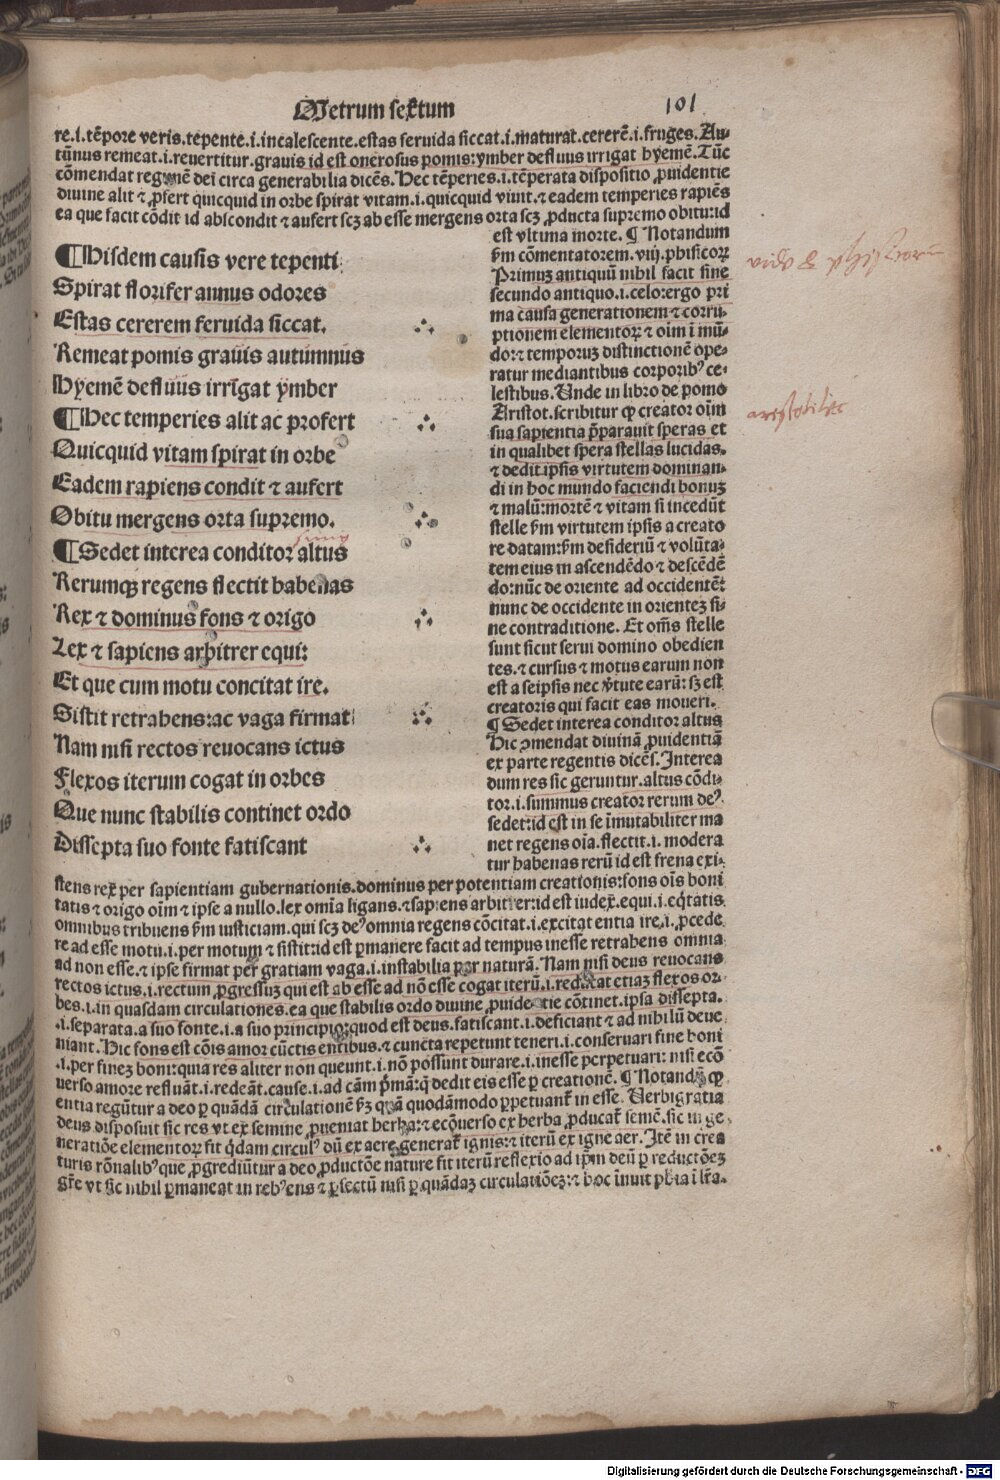 Metrum sextum
101
re.i.tẽpore veris.tepente.i.incalescente.estas feruida siccat.i.maturat.cererẽ.i.fruges.Au-
tũnus remeat.i.reuertitur.grauis id est onerosus pomis:ymber defluus irrigat hyemẽ.Tũc
cõmendat regimẽ dei circa generabilia dicẽs.Hec tẽperies.i.tẽperata dispositio ꝓuidentie
diuine alit ⁊ ꝓfert quicquid in orbe spirat vitam.i.quicquid viuit.⁊ eadem temperies rapiẽs
ea que facit cõdit id abscondit ⁊ aufert scꝫ ab esse mergens orta scꝫ ꝓducta supremo obitu:id
¶Hisdem causis vere tepenti
Spirat florifer annus odores
Estas cererem feruida siccat.
Remeat pomis grauis autumnus
Hyemẽ defluus irrigat ymber
¶Hec temperies alit ac profert
Quicquid vitam spirat in orbe
Eadem rapiens condit ⁊ aufert
Obitu mergens orta supremo.
¶Sedet interea conditor altus
Rerumqꝫ regens flectit habenas
Rex ⁊ dominus fons ⁊ origo
Lex ⁊ sapiens arbitrer equi:
Et que cum motu concitat ire.
Sistit retrahens:ac vaga firmat
Nam nisi rectos reuocans ictus
Flexos iterum cogat in orbes
Que nunc stabilis continet ordo
Dissepta suo fonte fatiscant
est vltima morte. ¶ Notandum
ẜm cõmentatorem.viij.phisicoꝝ
Primuꝫ antiquũ nihil facit sine
secundo antiquo.i.celo:ergo pri
ma causa generationem ⁊ corru-
ptionem elementoꝝ ⁊ oim̃ i mũ-
do:⁊ temporuꝫ distinctionẽ ope-
ratur mediantibus corporibꝰ ce-
lestibus. Unde in libro de pomo
Aristot.scribitur ꝙ creator oim̃
sua sapientia p̃parauit speras et
in qualibet spera stellas lucidas.
⁊ dedit.ipsis virtutem dominan-
di in hoc mundo faciendi bonuꝫ
⁊ malũ:mortẽ ⁊ vitam si incedũt
stelle ẜm virtutem ipsis a creato
re datam:ẜm desideriũ ⁊ volũta-
tem eius in ascendẽdo ⁊ descẽdẽ
do:nũc de oriente ad occidentẽ:
nunc de occidente in orienteꝫ si-
ne contraditione. Et om̃s stelle
sunt sicut serui domino obedien
tes.⁊ cursus ⁊ motus earum non
est a seipsis nec ṽtute earũ: sꝫ est
creatoris qui facit eas moueri.
¶ Sedet interea conditor altus
Hic ꝯmendat diuinã ꝓuidentiã
ex parte regentis dicẽs.Interea
dum res sic geruntur.altus cõdi-
tor.i.summus creator rerum deꝰ
sedet:id est in se im̃utabiliter ma
net regens oĩa.flectit.i. modera
tur habenas rerũ id est frena exi-
stens rex per sapientiam gubernationis.dominus per potentiam creationis:fons oĩs boni
tatis ⁊ origo oim̃ ⁊ ipse a nullo.lex omĩa ligans.⁊ sapiens arbitrer:id est iudex.equi.i.eq̃tatis.
omnibus tribuens ẜm iusticiam.qui scꝫ deꝰ omnia regens cõcitat.i.excitat entia ire.i.ꝓcede
re ad esse motu.i.per motum ⁊ sistit:id est ꝑmanere facit ad tempus inesse retrahens omnia
ad non esse.⁊ ipse firmat per gratiam vaga.i.instabilia per naturã. Nam nisi deus reuocans
rectos ictus.i.rectum ꝓgressuꝫ qui est ab esse ad nõ esse cogat iterũ.i.reducat etiaꝫ flexos or-
bes.i.in quasdam circulationes.ea que stabilis ordo diuine ꝓuidentie cõtinet.ipsa dissepta.
.i.separata.a suo fonte.i.a suo principio:quod est deus.fatiscant.i.deficiant ⁊ ad nihilũ deue
niant. Hic fons est cõis amor cũctis entibus.⁊ cuncta repetunt teneri.i.conseruari fine boni
.i.per fineꝫ boni:quia res aliter non queunt.i.nõ possunt durare.i.inesse perpetuari: nisi ecõ
uerso amore refluãt.i.redeãt.cause.i.ad cãm p̃mã:q̃ dedit eis esse ꝑ creationẽ. ¶ Notandũ ꝙ
entia regũtur a deo ꝑ quãdã circulationẽ ẜꝫ quã quodãmodo ꝑpetuant̃ in esse. Uerbigratia
deus disposuit sic res vt ex semine ꝓueniat herba:⁊ ecõuerso ex herba ꝓducat̃ semẽ.sic in ge
neratiõe elementoꝝ fit q̃dam circulꝰ dũ ex aere generat̃ ignis:⁊ iterũ ex igne aer. Itẽ in crea
turis rõnalibꝰ que ꝓgrediũtur a deo ꝓductõe nature fit iterũ reflexio ad ip̃m deũ ꝑ reductõeꝫ
gr̃e vt sic nihil ꝑmaneat in rebꝰ ens ⁊ ꝑfectũ nisi ꝑ quãdaꝫ circulatiõeꝫ:⁊
aristotiles
Digitalisierung gefördert durch die Deutsche Forschungsgemeinschaft - DFG